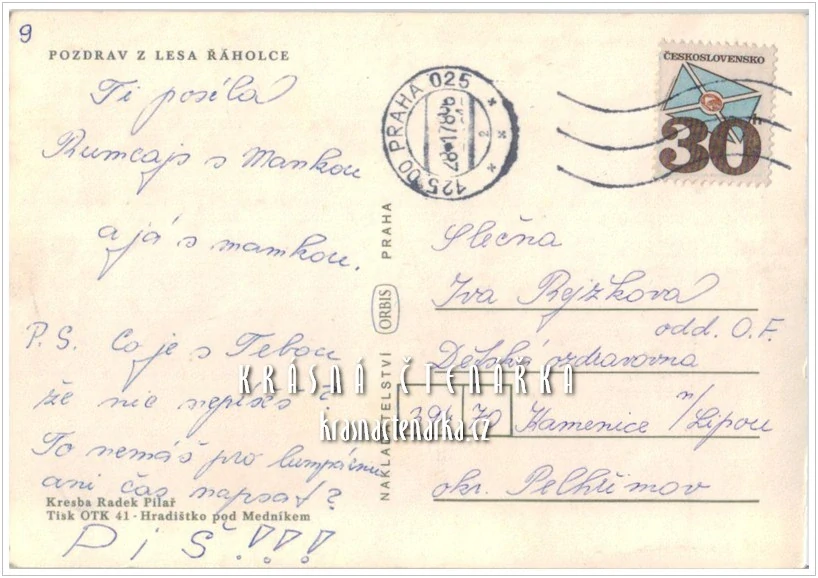 9
POZDRAV Z LESA ŘÁHOLCE
Ti posílá
Rumcajs s Mankou
a já s mamkou.
P.S. Co je s Tebou
že nic nepíšeš?
To nemáš pro lumpárnu
ani čas napsat?
Kresba Radek Pilař
Tisk OTK 41 - Hradištko pod Medníkem
PIŠ!!!
NAKLADATELSTVÍ ORBIS PRAHA
125 00 PRAHA 025
ČESKOSLOVENSKO
30h
Slečna
Iva Rejžková
odd. O.F.
Dětská ozdravovna
394 70 Kamenice n/Lipou
okr. Pelhřimov
KRÁSNÁ ČTENÁŘKA
krasnactenarka.cz